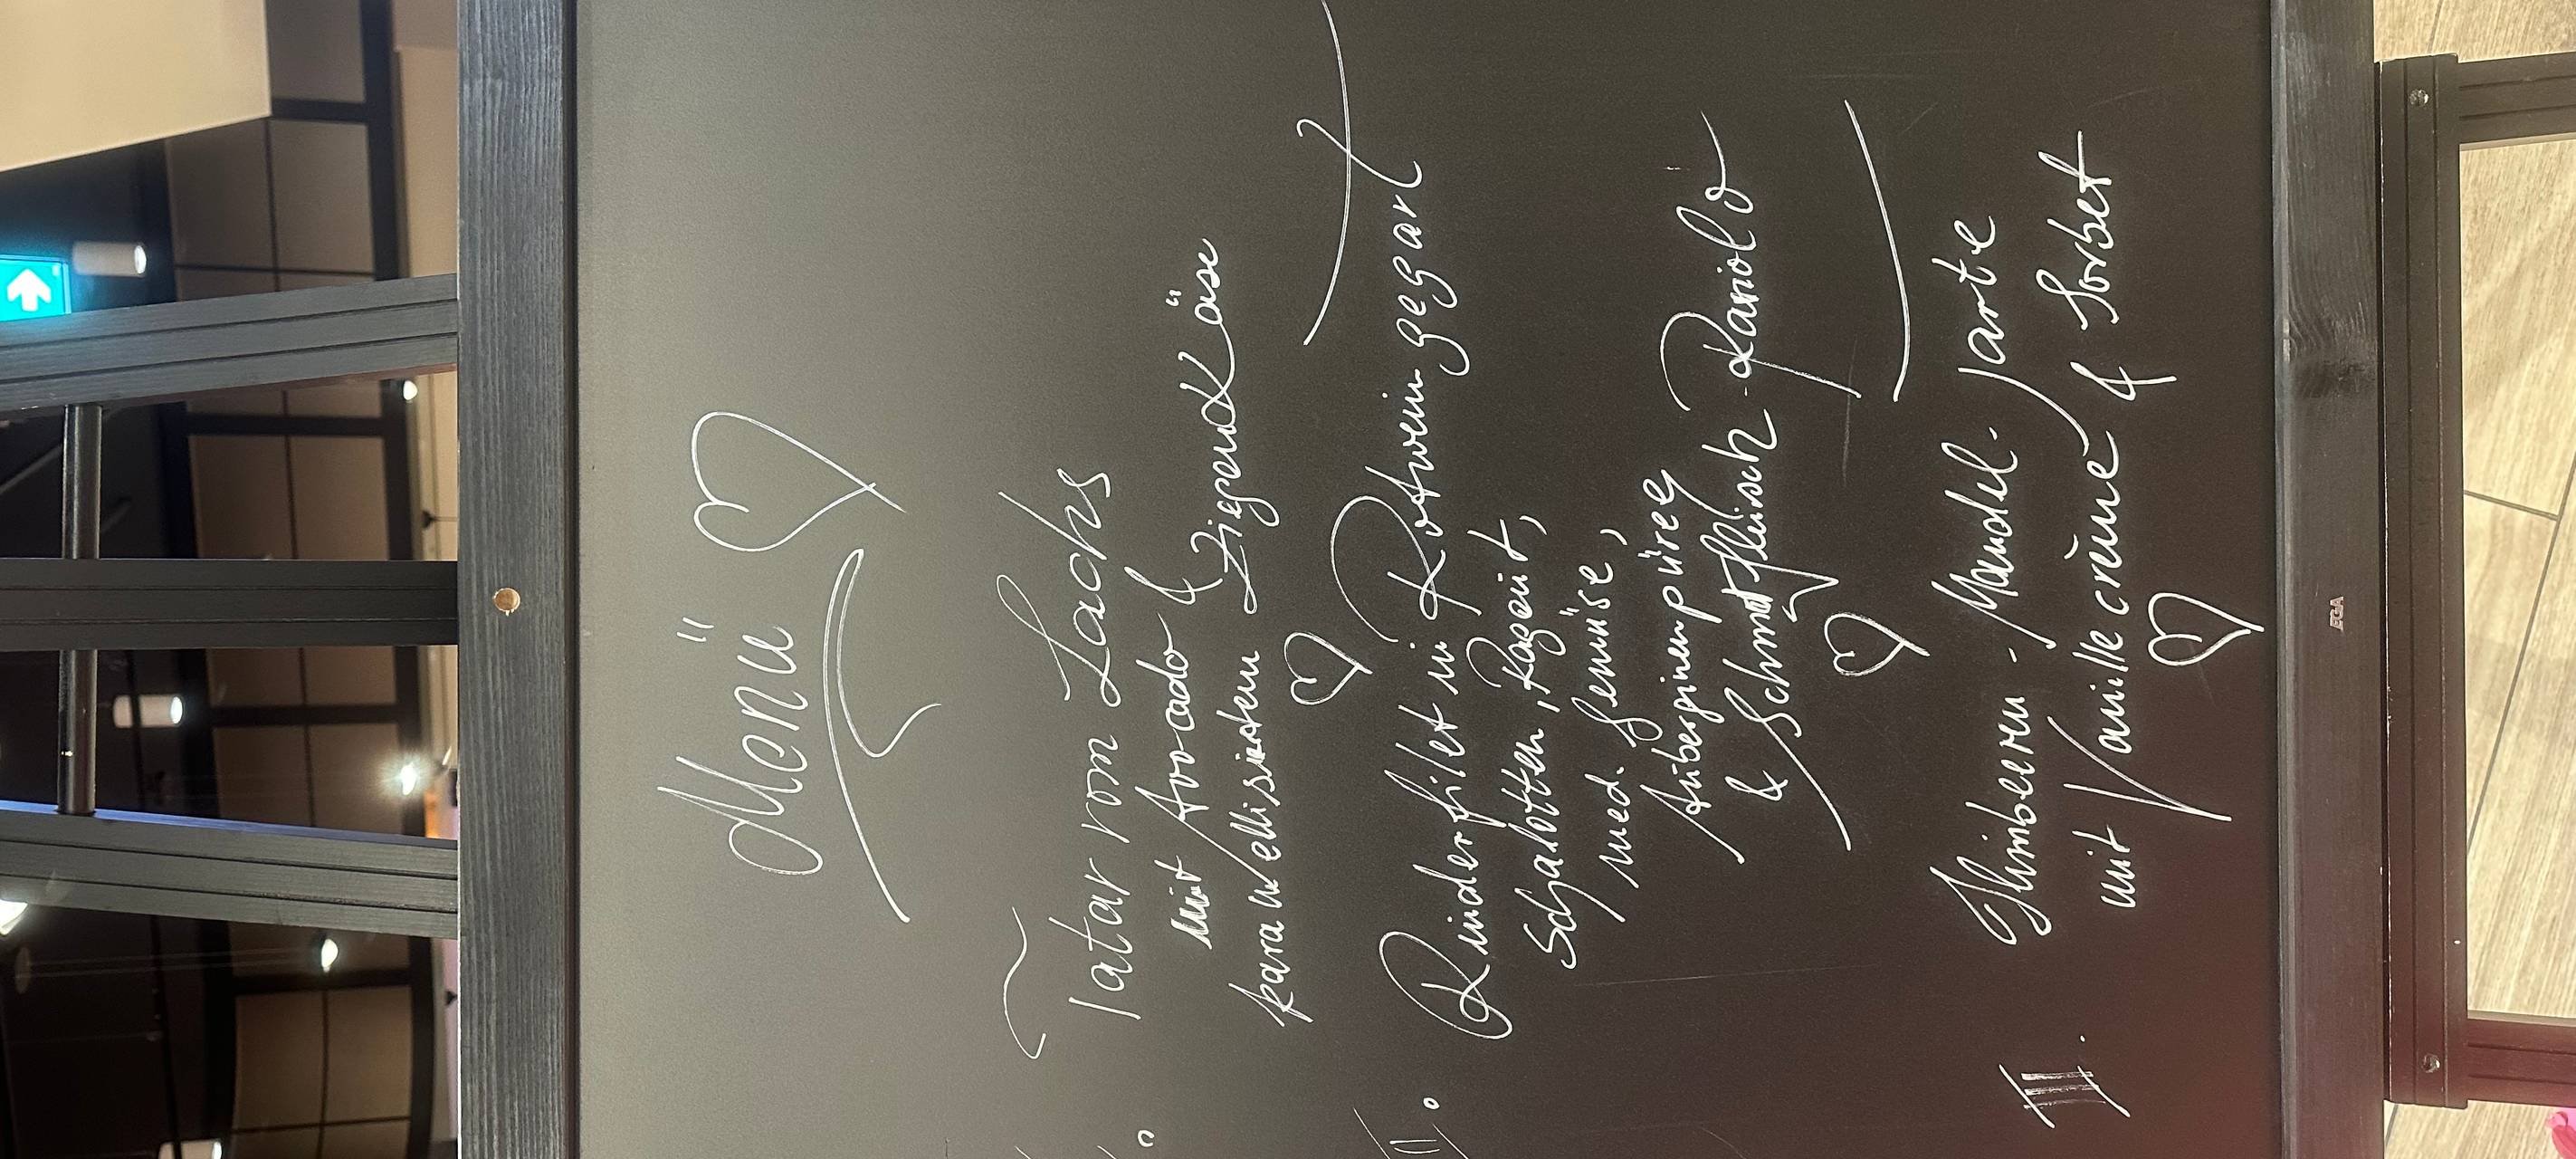 Menü
I.
Tatar vom Lachs
mit Avocado &
karamellisiertem Ziegenkäse
II.
Rinderfilet in Rotwein gegart
Schalotten, Ragout,
med. Gemüse,
Auberginenpüree
& Schmorfleisch-Raviolo
III.
Himbeeren-Mandel-Tarte
mit Vanille crème & Sorbet